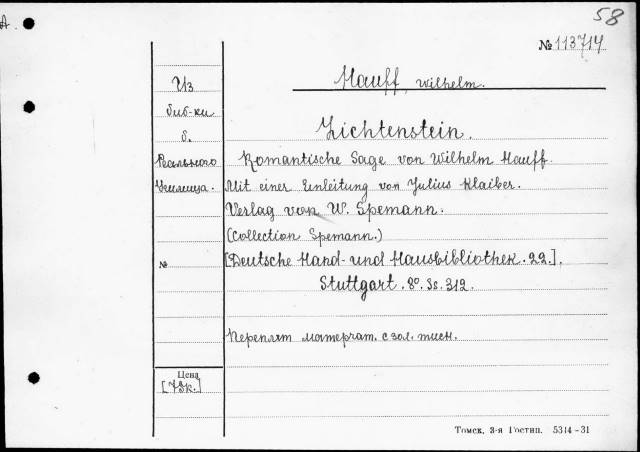 58
A.
№ 113714
Hauff, Wilhelm.
Из
биб-ки
б.
Реального
Училища.
Lichtenstein.
Romantische Sage von Wilhelm Hauff.
Mit einer Einleitung von Julius Klaiber.
Verlag von W. Spemann.
(Collection Spemann.)
№
[Deutsche Hand- und Hausbibliothek. 22.].
Stuttgart. 8º. Ss. 312.
Переплет матерчат. с зол. тисн.
Цена
[73к.]
Томск, 3-я Гостип. 5314-31